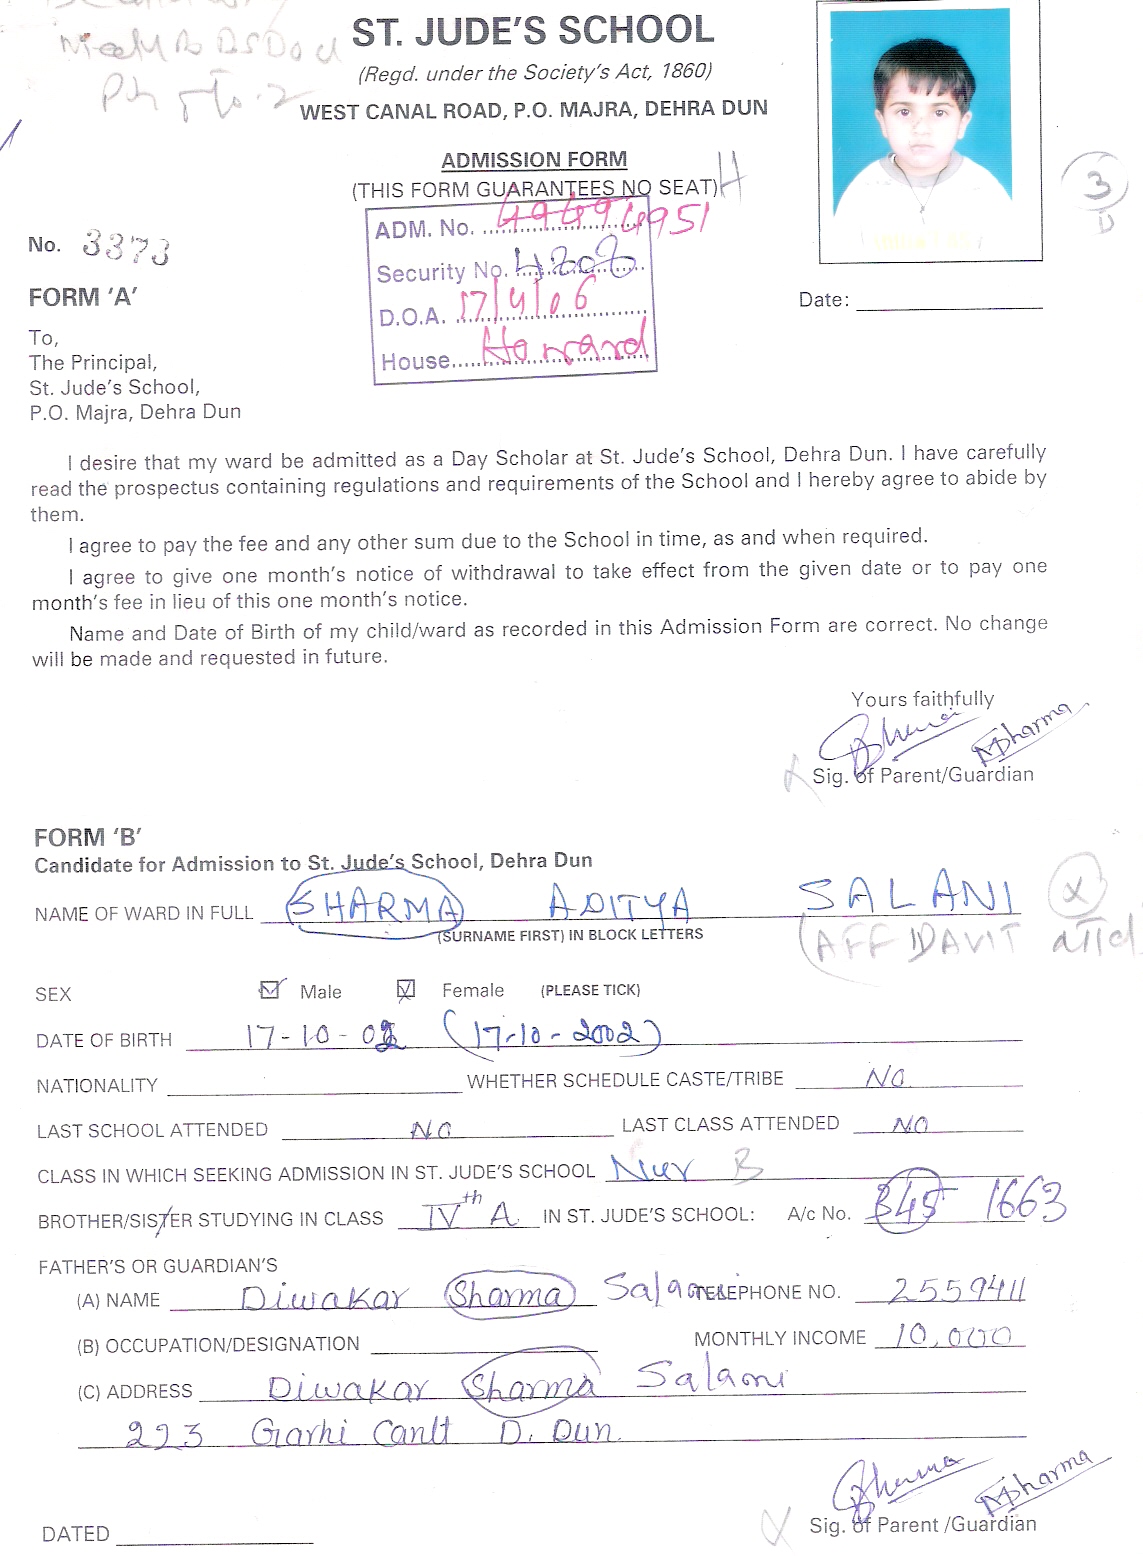 ST. JUDE'S SCHOOL
(Regd. under the Society's Act, 1860)
WEST CANAL ROAD, P.O. MAJRA, DEHRA DUN
ADMISSION FORM
(THIS FORM GUARANTEES NO SEAT) H
ADM. No. 4949 4951
Security No. 4808
D.O.A. 17/4/06
House Howard
3
D
No. 3373
FORM 'A'
Date:
To,
The Principal,
St. Jude's School,
P.O. Majra, Dehra Dun
I desire that my ward be admitted as a Day Scholar at St. Jude's School, Dehra Dun. I have carefully
read the prospectus containing regulations and requirements of the School and I hereby agree to abide by
them.
I agree to pay the fee and any other sum due to the School in time, as and when required.
I agree to give one month's notice of withdrawal to take effect from the given date or to pay one
month's fee in lieu of this one month's notice.
Name and Date of Birth of my child/ward as recorded in this Admission Form are correct. No change
will be made and requested in future.
Yours faithfully
Sharma
Sig. of Parent/Guardian
FORM 'B'
Candidate for Admission to St. Jude's School, Dehra Dun
NAME OF WARD IN FULL SHARMA ADITYA SALANI X
(SURNAME FIRST) IN BLOCK LETTERS
AFFIDAVIT attd
SEX Male Female (PLEASE TICK)
DATE OF BIRTH 17-10-02 (17-10-2002)
NATIONALITY WHETHER SCHEDULE CASTE/TRIBE NO
LAST SCHOOL ATTENDED NO LAST CLASS ATTENDED NO
CLASS IN WHICH SEEKING ADMISSION IN ST. JUDE'S SCHOOL Nur B
BROTHER/SISTER STUDYING IN CLASS IVth A IN ST. JUDE'S SCHOOL: A/c No. 345 1663
FATHER'S OR GUARDIAN'S
(A) NAME Diwakar Sharma Salani TELEPHONE NO. 2559411
(B) OCCUPATION/DESIGNATION MONTHLY INCOME 10,000
(C) ADDRESS Diwakar Sharma Salani
223 Garhi Cantt D. Dun.
Sharma
Sig. of Parent /Guardian
DATED